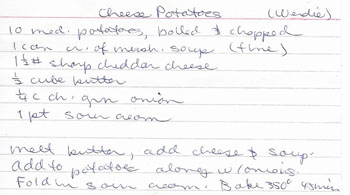 Cheese Potatoes (Werdie)
10 med. potatoes, boiled & chopped
1 can cr. of mush. soup (fine)
1½# sharp cheddar cheese
½ cube butter
¼ c ch. grn onion
1 pt sour cream
melt butter, add cheese & soup.
add to potatoes along w/onions.
Fold in sour cream. Bake 350° 45 min